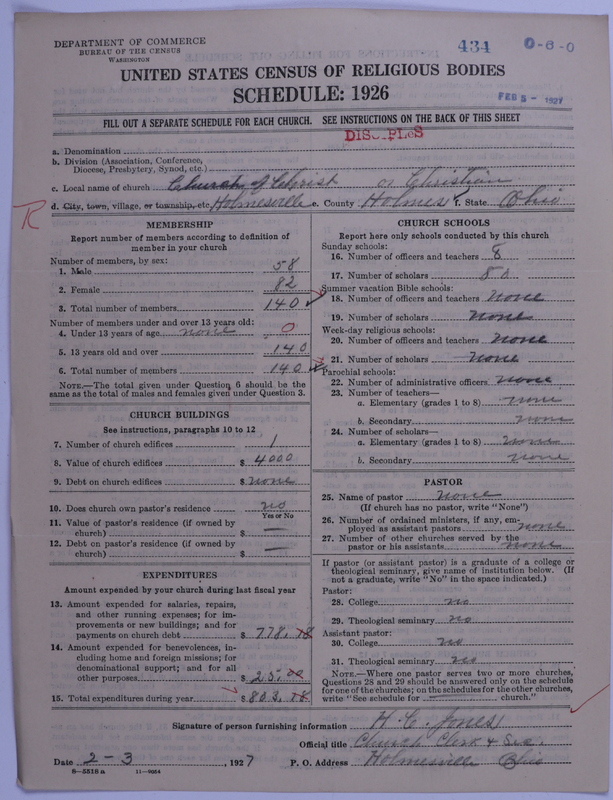 DEPARTMENT OF COMMERCE
BUREAU OF THE CENSUS
WASHINGTON
434
0-6-0
UNITED STATES CENSUS OF RELIGIOUS BODIES
SCHEDULE: 1926
FEB 5 - 1927
FILL OUT A SEPARATE SCHEDULE FOR EACH CHURCH. SEE INSTRUCTIONS ON THE BACK OF THIS SHEET
DISCIPLES
a. Denomination
b. Division (Association, Conference, Diocese, Presbytery, Synod, etc.)
c. Local name of church Church of Christ or Christian
R
d. City, town, village, or township, etc. Holmesville e. County Holmes f. State Ohio
MEMBERSHIP
Report number of members according to definition of member in your church
Number of members, by sex:
1. Male 58
2. Female 82
3. Total number of members 140
Number of members under and over 13 years old:
4. Under 13 years of age none 0
5. 13 years old and over 140
6. Total number of members 140
NOTE.—The total given under Question 6 should be the same as the total of males and females given under Question 3.
CHURCH BUILDINGS
See instructions, paragraphs 10 to 12
7. Number of church edifices 1
8. Value of church edifices $ 4000
9. Debt on church edifices $ none
10. Does church own pastor's residence no
Yes or No
11. Value of pastor's residence (if owned by church) $ —
12. Debt on pastor's residence (if owned by church) $ —
EXPENDITURES
Amount expended by your church during last fiscal year
13. Amount expended for salaries, repairs, and other running expenses; for improvements or new buildings; and for payments on church debt $ 778.18
14. Amount expended for benevolences, including home and foreign missions; for denominational support; and for all other purposes $ 25.00
15. Total expenditures during year $ 803.18
CHURCH SCHOOLS
Report here only schools conducted by this church
Sunday schools:
16. Number of officers and teachers 8
17. Number of scholars 80
Summer vacation Bible schools:
18. Number of officers and teachers none
19. Number of scholars none
Week-day religious schools:
20. Number of officers and teachers none
21. Number of scholars none
Parochial schools:
22. Number of administrative officers none
23. Number of teachers—
a. Elementary (grades 1 to 8) none
b. Secondary none
24. Number of scholars—
a. Elementary (grades 1 to 8) none
b. Secondary none
PASTOR
25. Name of pastor None
(If church has no pastor, write "None")
26. Number of ordained ministers, if any, employed as assistant pastors none
27. Number of other churches served by the pastor or his assistants none
If pastor (or assistant pastor) is a graduate of a college or theological seminary, give name of institution below. (If not a graduate, write "No" in the space indicated.)
Pastor:
28. College no
29. Theological seminary no
Assistant pastor:
30. College no
31. Theological seminary no
NOTE.—Where one pastor serves two or more churches, Questions 28 and 29 should be answered only on the schedule for one of the churches; on the schedules for the other churches, write "See schedule for ——— church."
Signature of person furnishing information H. C. Jones
Official title Church Clerk & Sec.
Date 2-3, 1927 P. O. Address Holmesville Ohio
8—5318 a 11—9024